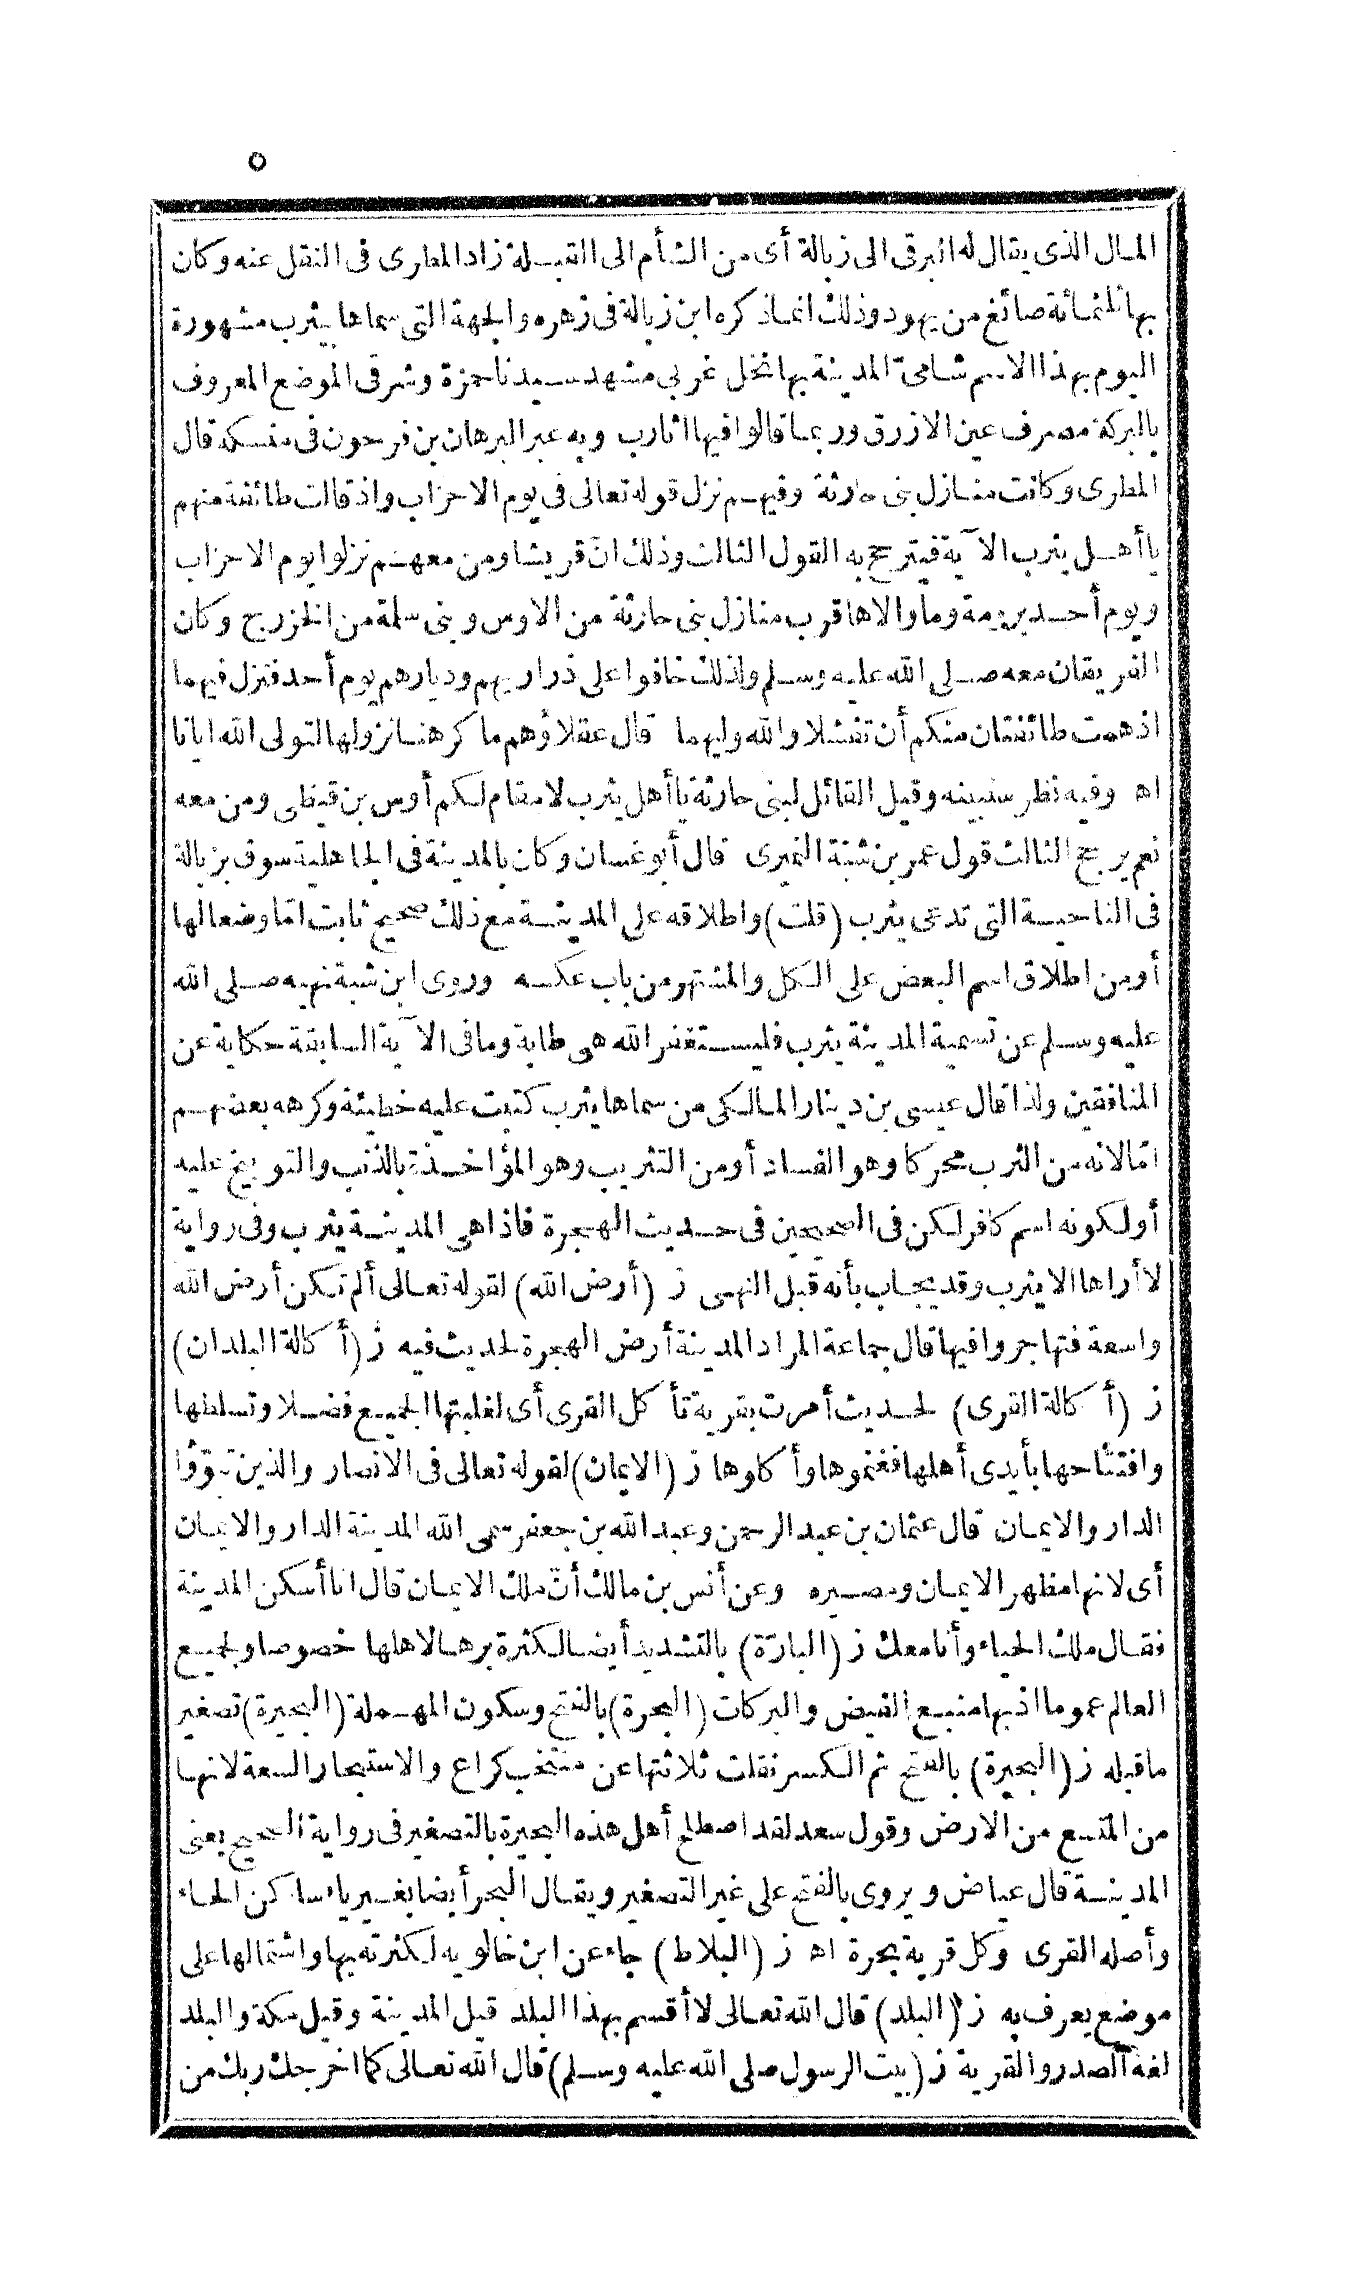 ٥
المال الذى يقال له البرقى الى زبالة أى من الشأم الى القبلة زاد المطرى فى النقل عنه وكان
بها ثلثمائة صائغ من يهود وذلك انماذكره ابن زبالة فى زهره والجهة التى سماها يثرب مشهورة
اليوم بهذا الاسم شامىّ المدينة بها نخل غربى مشهد سيدنا حمزة وشرقى الموضع المعروف
بالبركة مصرف عين الازرق وربما قالوا فيها اثارب وبه عبر البرهان بن فرحون فى منسكه قال
المطرى وكانت منازل بنى حارثة وفيهم نزل قوله تعالى فى يوم الاحزاب واذ قالت طائفة منهم
يا أهل يثرب الآية فيترجح به القول الثالث وذلك انّ قريشا ومن معهم نزلوا يوم الاحزاب
ويوم أحد برومة وما والاها قرب منازل بنى حارثة من الاوس وبنى سلمة من الخزرج وكان
الفريقان معه صلى الله عليه وسلم ولذلك خافوا على ذراريهم وديارهم يوم أحد فنزل فيهما
اذ همت طائفتان منكم أن تفشلا والله وليهما قال عقلاؤهم ما كرهنا نزولها لتولى الله ايانا
اه وفيه نظر سنبينه وقيل القائل لبنى حارثة يا أهل يثرب لا مقام لكم أوس بن قيظى ومن معه
نعم يرجح الثالث قول عمر بن شبة النميرى قال أبو غسان وكان بالمدينة فى الجاهلية سوق بزبالة
فى الناحية التى تدعى يثرب (قلت) واطلاقه على المدينة مع ذلك صحيح ثابت امّا وضعا لها
أو من اطلاق اسم البعض على الكل والمشتهر من باب عكسه وروى ابن شبة نهيه صلى الله
عليه وسلم عن تسمية المدينة يثرب فليستغفر الله هى طابة وما فى الآية السابقة حكاية عن
المنافقين ولذا قال عيسى بن دينار المالكى من سماها يثرب كتبت عليه خطيئة وكرهه بعضهم
امّا لانه من الثرب محركا وهو الفساد أو من التثريب وهو المؤاخذة بالذنب والتوبيخ عليه
أو لكونه اسم كافر لكن فى الصحيحين فى حديث الهجرة فاذا هى المدينة يثرب وفى رواية
لا أراها الا يثرب وقد يجاب بأنه قبل النهى ز (أرض الله) لقوله تعالى ألم تكن أرض الله
واسعة فتهاجروا فيها قال جماعة المراد المدينة أرض الهجرة لحديث فيه ز (أكالة البلدان)
ز (أكالة القرى) لحديث أمرت بقرية تأكل القرى أى لغلبتها الجميع فضلا وتسلطها
وافتتاحها بأيدى أهلها فغنموها وأكلوها ز (الايمان) لقوله تعالى فى الانصار والذين تبوّؤا
الدار والايمان قال عثمان بن عبد الرحمن وعبد الله بن جعفر سمى الله المدينة الدار والايمان
أى لانها مظهر الايمان ومصيره وعن أنس بن مالك أنّ ملك الايمان قال انا أسكن المدينة
فقال ملك الحياء وأنا معك ز (البارّة) بالتشديد أيضا لكثرة برها لاهلها خصوصا ولجميع
العالم عموما اذ بها منبع الفيض والبركات (البحرة) بالفتح وسكون المهملة (البحيرة) تصغير
ما قبله ز (البحيرة) بالفتح ثم الكسر نقلت ثلاثتها عن منتخب كراع والاستبحار السعة لانها
من المتسع من الارض وقول سعد لقد اصطلح أهل هذه البحيرة بالتصغير فى رواية الصحيح يعنى
المدينة قال عياض ويروى بالفتح على غير التصغير ويقال البحر أيضا بغير ياء ساكن الحاء
وأصله القرى وكل قرية بحرة اه ز (البلاط) جاء عن ابن خالويه لكثرته بها واشتمالها على
موضع يعرف به ز (البلد) قال الله تعالى لا أقسم بهذا البلد قيل المدينة وقيل مكة والبلد
لغة الصدر والقرية ز (بيت الرسول صلى الله عليه وسلم) قال الله تعالى كما اخرجك ربك من